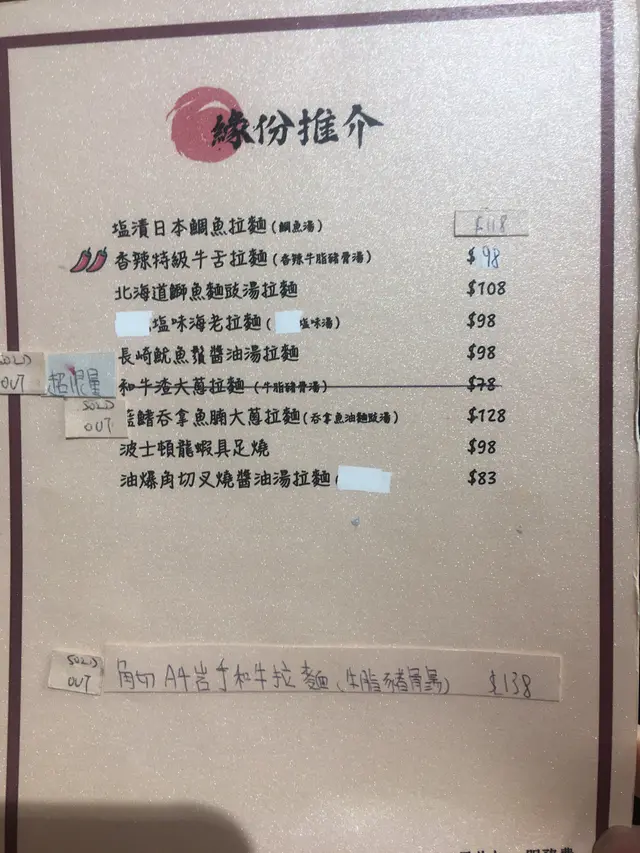 緣份推介
塩漬日本鯛魚拉麵(鯛魚湯) $118
香辣特級牛舌拉麵(香辣牛脂豬骨湯) $98
北海道鰤魚麵豉湯拉麵 $108
塩味海老拉麵( 塩味湯) $98
長崎魷魚鬚醬油湯拉麵 $98
SOLD OUT 超限量 和牛渣大蔥拉麵(牛脂豬骨湯) $78
SOLD OUT 藍鰭吞拿魚腩大蔥拉麵(吞拿魚油麵豉湯) $128
波士頓龍蝦具足燒 $98
油爆角切叉燒醬油湯拉麵( $83
SOLD OUT 角切A4岩手和牛拉麵(牛脂豬骨湯) $138